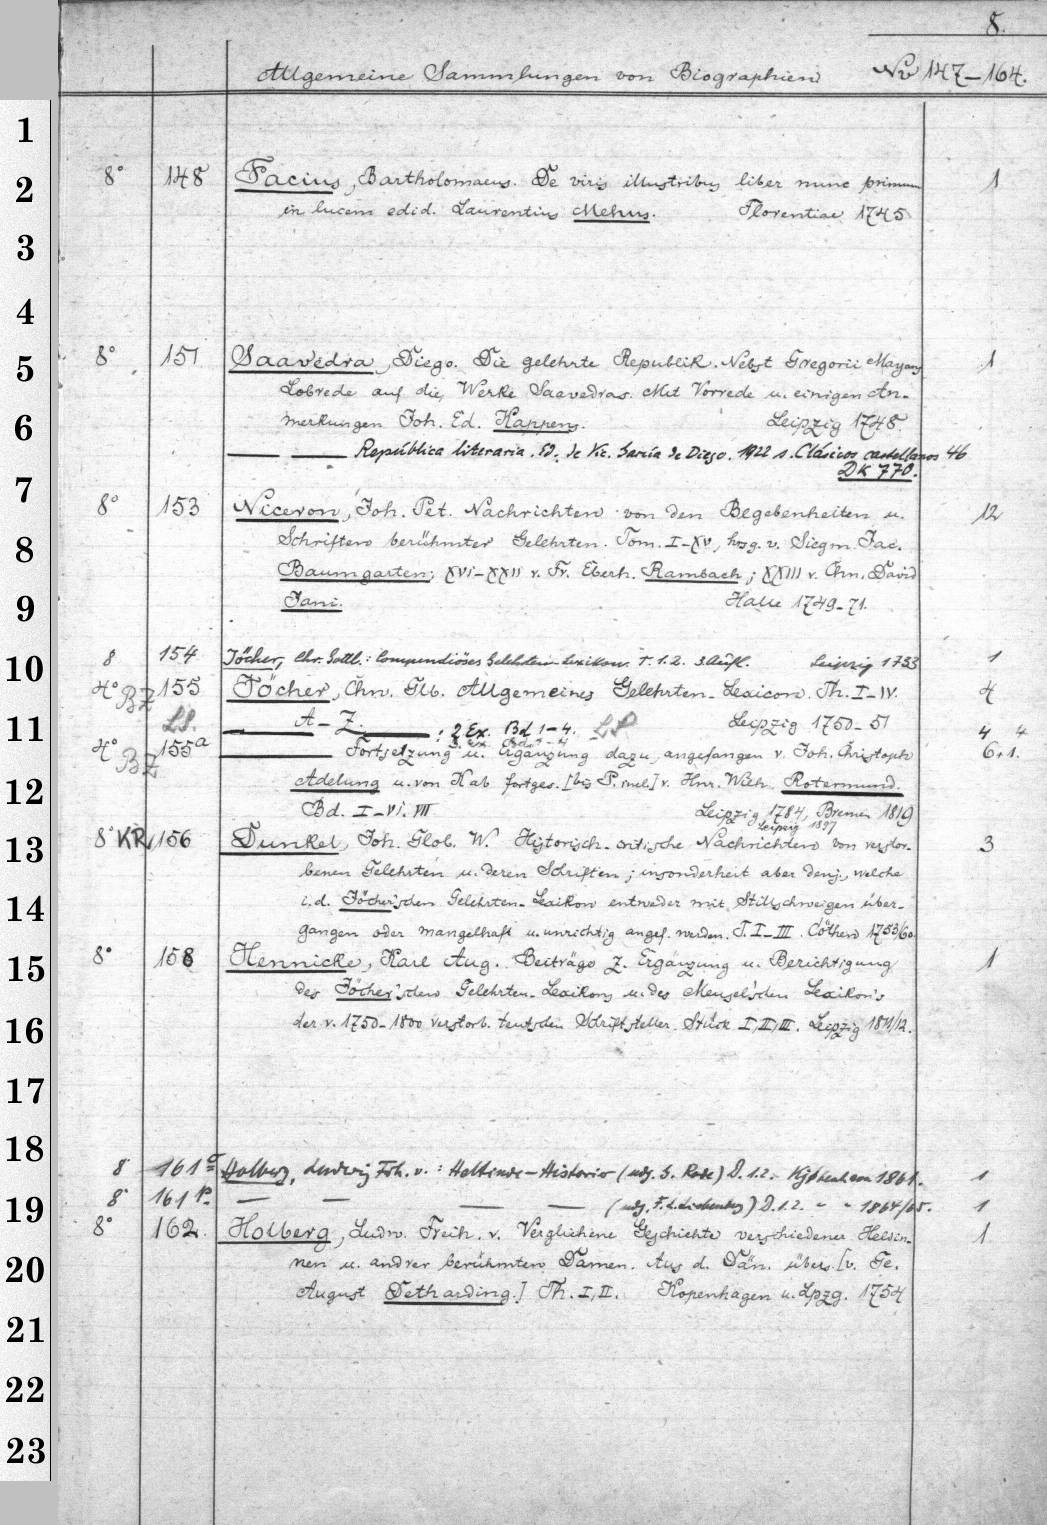 8.
Allgemeine Sammlungen von Biographien No 147-164.
1
2
3
4
5
6
7
8
9
10
11
12
13
14
15
16
17
18
19
20
21
22
23
8° 148 Facius, Bartholomaeus. De viris illustribus liber nunc primum 1
in lucem edid. Laurentius Mehus. Florentiae 1745
8° 151 Saavedra, Diego. Die gelehrte Republik. Nebst Gregorii Mayans 1
Lobrede auf die Werke Saavedras. Mit Vorrede u. einigen An-
merkungen Joh. Ed. Kappens. Leipzig 1748.
— — República literaria. Ed. de Vic. García de Diego. 1922 s. Clásicos castellanos 46
DK 770.
8° 153 Niceron, Joh. Pet. Nachrichten von den Begebenheiten u. 12
Schriften berühmter Gelehrten. Tom. I-XV, hrsg. v. Siegm. Jac.
Baumgarten; XVI-XXII v. Fr. Eberh. Rambach; XXIII v. Chn. David
Jani. Halle 1749-71.
8 154 Jöcher, Chr. Gottl.: Compendiöses Gelehrten-Lexikon. T. 1.2. 3. Aufl. Leipzig 1733 1
4° BZ 155 Jöcher, Chn. Glb. Allgemeines Gelehrten-Lexicon. Th. I-IV. 4
LS. — A-Z. — : 2 Ex. Bd. 1-4. LS Leipzig 1750-51 4 4
4° BZ 155a — Fortsetzung u. Ergänzung dazu, angefangen v. Joh. Christoph 6+1.
Adelung u. von Kab fortges. [bis P. incl.] v. Hnr. Wilh. Rotermund.
Bd. I-VI. VII Leipzig 1784, Bremen 1819
Leipzig 1897
8° KR 156 Dunkel, Joh. Glob. W. Historisch-critische Nachrichten von verstor- 3
benen Gelehrten u. deren Schriften; insonderheit aber denj., welche
i. d. Jöcher'schen Gelehrten-Lexikon entweder mit Stillschweigen über-
gangen oder mangelhaft u. unrichtig angef. werden. T. I-III. Cöthen 1753/60.
8° 158 Hennicke, Karl Aug. Beiträge z. Ergänzung u. Berichtigung 1
des Jöcher'schen Gelehrten-Lexikons u. des Meusel'schen Lexikon's
der v. 1750-1800 verstorb. teutschen Schriftsteller. Stück I, II, III. Leipzig 1811/12.
8 161a Holberg, Ludwig Frh. v.: Heltinde-Historier (udg. S. Rode) D. 1.2. Kjøbenhavn 1861. 1
8° 161b — — — — (udg. F. L. Liebenberg) D. 1.2. " " 1864/65. 1
8° 162. Holberg, Ludw. Freih. v. Verglichene Geschichte verschiedener Heldin- 1.
nen u. andrer berühmten Damen. Aus d. Dän. übers. [v. Ge.
August Detharding.] Th. I, II. Kopenhagen u. Lpzg. 1754